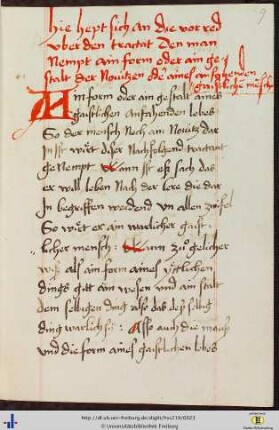 hie hept sich an die vor red
vber den tractat Den man
Nempt ain form oder ain ge
stalt der Nouitzen die aines anfahenden
gaistliche mensch
Ain form oder ain gestalt aines
gaistlichen anfahenden lebes
So der mensch Noch ain Nouitz dar
In ist wirt diser Nachfolgend tractant
ge Nempt Wann ist es sach das
er will leben Nach der lere die dar
In begriffen wirdend vn allen zwifel
So wirt er ain warlicher gaist
licher mensch: Wann zů gelicher
wis als ain form aines ytlichen
dings gitt ain wesen und ain stalt
dem selbigen ding also das das selbig
ding warlich ist: Also auch die
vnd die form aines gaistlichen lebes
http://dl.ub.uni-freiburg.de/diglit/hs219/0023
© Universitätsbibliothek Freiburg